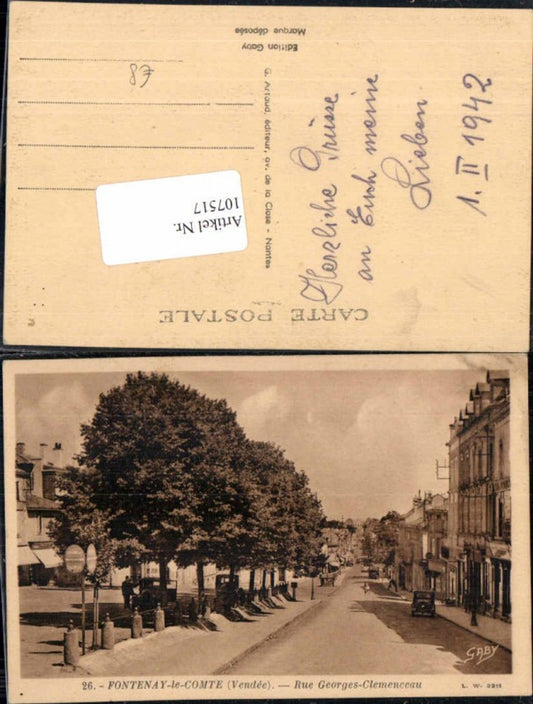 CARTE POSTALE
Herzliche Grüsse
an Euch meine
Lieben.
1. II 1942
G. Artaud, éditeur, av. de la Close - Nantes
Edition Gaby
Marque déposée
€8
Artikel Nr.
107517
GABY
26. - FONTENAY-le-COMTE (Vendée). — Rue Georges-Clemenceau
L. W. 2211